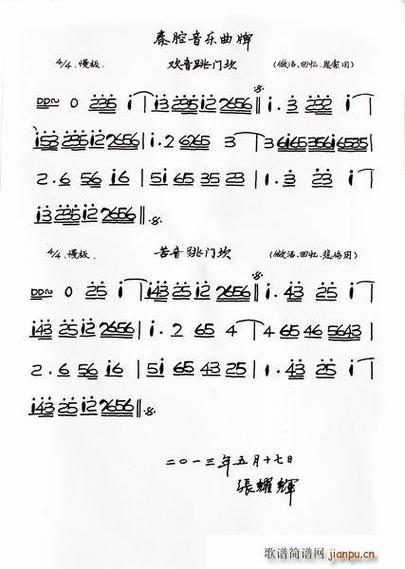 秦腔音乐曲牌
4/4.慢板. 欢音跳门坎 (做活、回忆、思索用)
0 2235 i | i3 2235 i2 2656 𝄋 i.3 2232 i |
i53 2235 i2 2656 | i.2 6265 3 | 3 6i65 3561 6535 |
2.6 56 i6 | 5i 65 35 23 | i.3 23 i |
i3 2235 i2 2656 𝄋
4/4.慢板. 苦音跳门坎 (做活、回忆、悲伤用)
0 25 i | i43 25 i2 2656 𝄋 i.43 25 i |
i43 25 i2 2656 | i.2 65 4 | 4 65 46 5643 |
2.6 56 i6 | 5i 65 43 25 | i.43 25 i |
i43 25 i2 2656 𝄋
二〇一三年五月十七日
張耀輝
歌谱简谱网
jianpu.cn